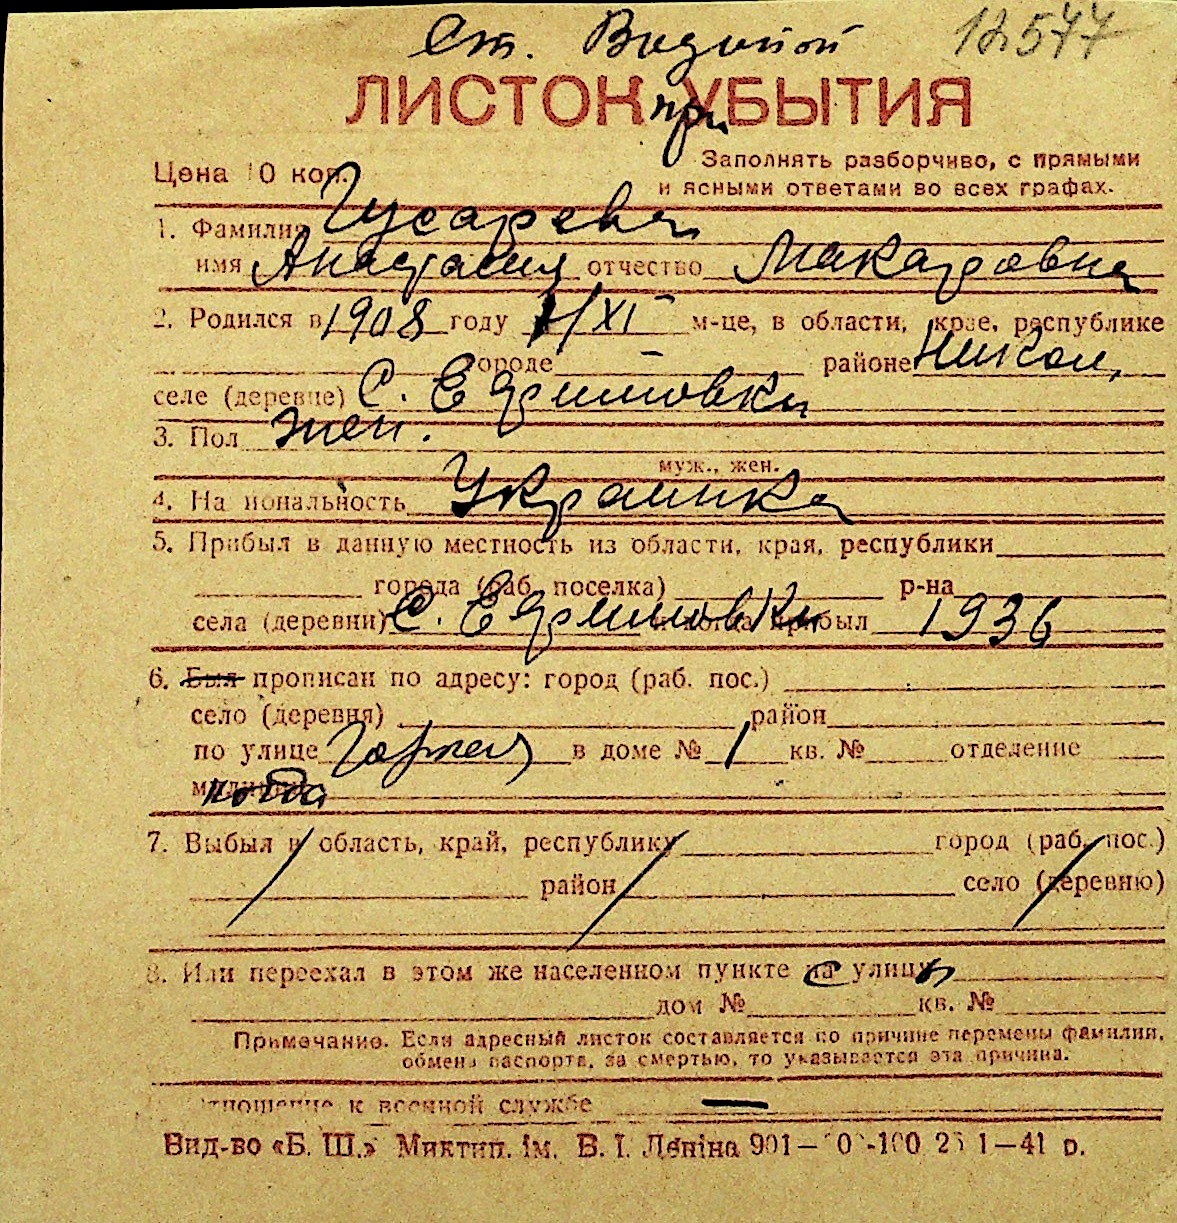 Ст. 12577
ЛИСТОК при УБЫТИЯ
Цена 10 коп.
Заполнять разборчиво, с прямыми
и ясными ответами во всех графах.
1. Фамилия Гусарева
имя Анастасия отчество Макаровна
2. Родился в 1908 году 1/XI м-це, в области, крае, республике
городе — районе Никоп.
селе (деревне) С. Ефимовка
3. Пол жен.
муж., жен.
4. Национальность Украинка
5. Прибыл в данную местность из области, края, республики
города (раб. поселка) р-на
села (деревни) С. Ефимовки и когда прибыл 1936
6. Был прописан по адресу: город (раб. пос.)
село (деревня) район
по улице в доме № 1 кв. № отделение
милиции
7. Выбыл в область, край, республику город (раб. пос.)
район село (деревню)
8. Или переехал в этом же населенном пункте с улицы
дом № кв. №
Примечание. Если адресный листок составляется по причине перемены фамилии,
обмена паспорта, за смертью, то указывается эта причина.
отношение к военной службе —
Вид-во «Б. Ш.» Миктип. ім. В. І. Леніна 901— 1—41 р.